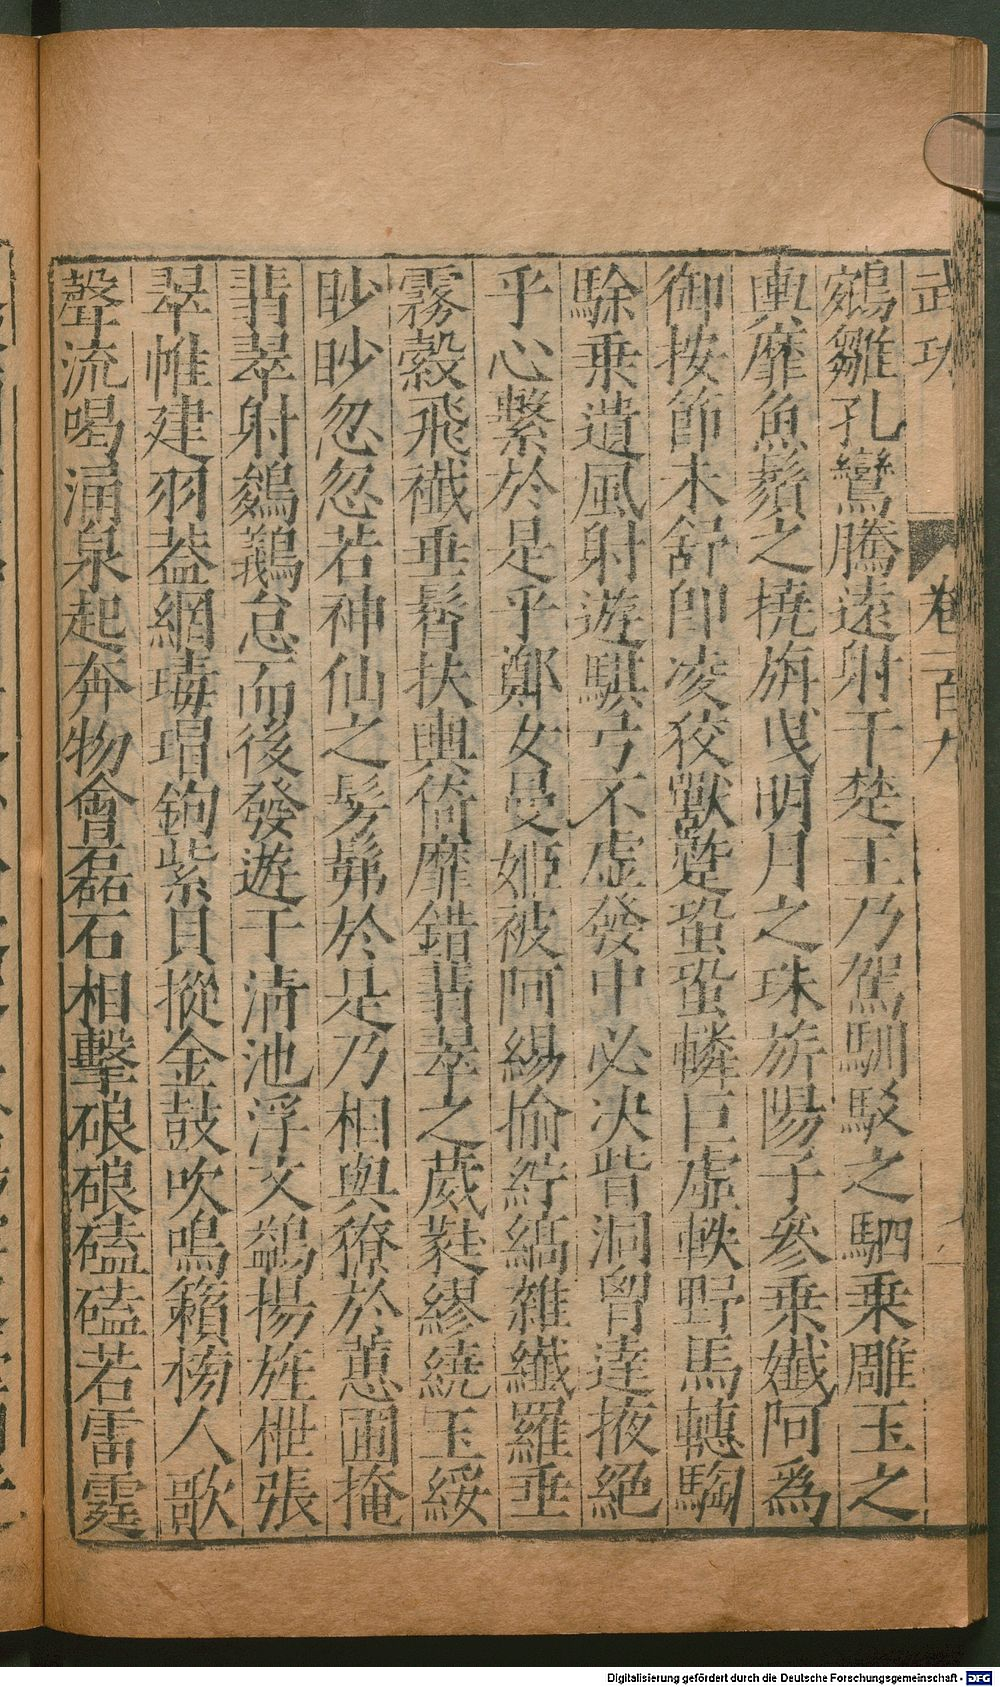 武功 卷一百九
鵷雛孔鸞騰遠射干楚王乃駕馴駁之駟乗雕玉之
輿靡魚鬚之撓旃曳明月之珠旂陽子參乗孅阿爲
御按節未舒即凌狡獸蹵蛩蛩轔巨虛軼野馬轊騊
駼乗遺風射遊騏弓不虛發中必决眥洞胷達掖絕
乎心繫於是乎鄭女曼姬被阿緆揄紵縞雜纖羅垂
霧縠飛襳垂髾扶輿猗靡錯翡翠之葳蕤繆繞玉綏
眇眇忽忽若神仙之髣髴於是乃相與獠於蕙圃掩
翡翠射鵕鸃怠而後發遊于清池浮文鷁揚旌枻張
翠帷建羽蓋網瑇瑁鉤紫貝摐金鼓吹鳴籟榜人歌
聲流喝涌泉起奔物會礧石相擊硠硠磕磕若雷霆
Digitalisierung gefördert durch die Deutsche Forschungsgemeinschaft - DFG